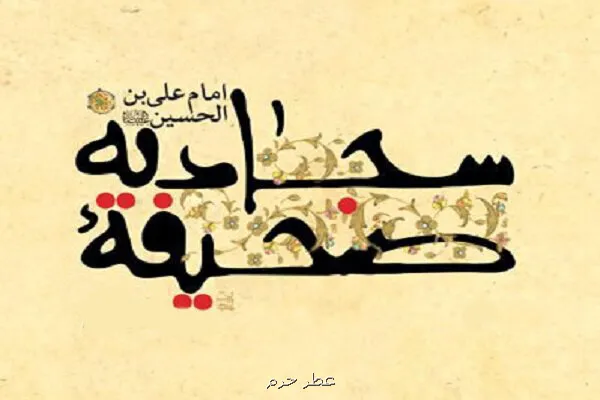 امام علی‌بن
الحسین
سجادیه
صحیفهٔ
عطر حرم